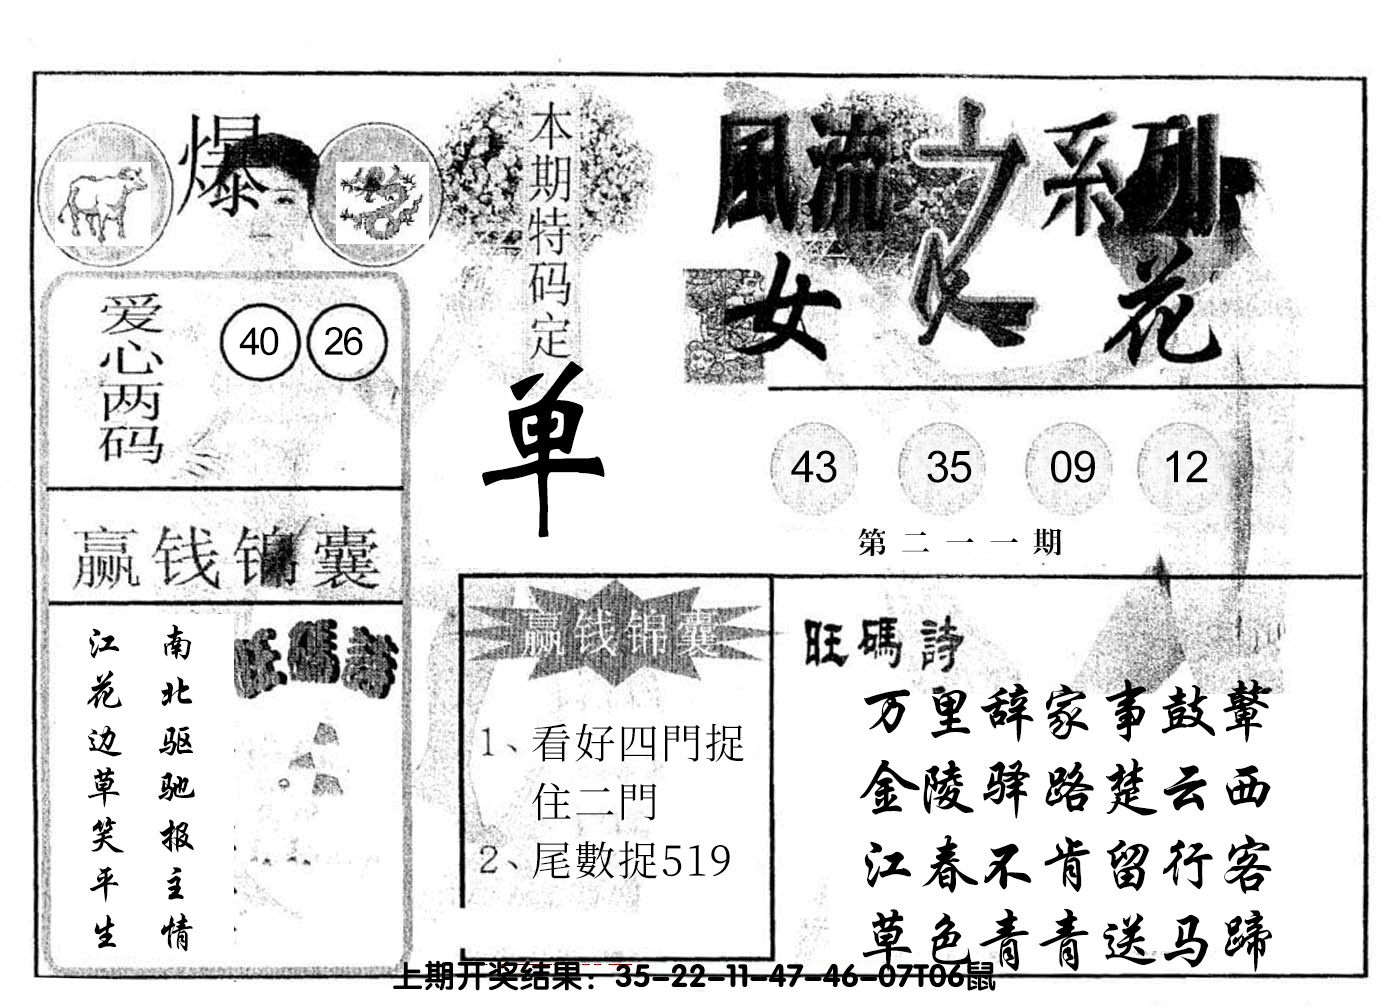 爆
爱心两码
40 26
赢钱锦囊
南北驱驰报主情
江花边草笑平生
旺碼詩
本期特码定
单
赢钱锦囊
1、看好四門捉
住二門
2、尾數捉519
風流之系列
女人花
43 35 09 12
第二一一期
旺碼詩
万里辞家事鼓鼙
金陵驿路楚云西
江春不肯留行客
草色青青送马蹄
上期开奖结果：35-22-11-47-46-07T06鼠